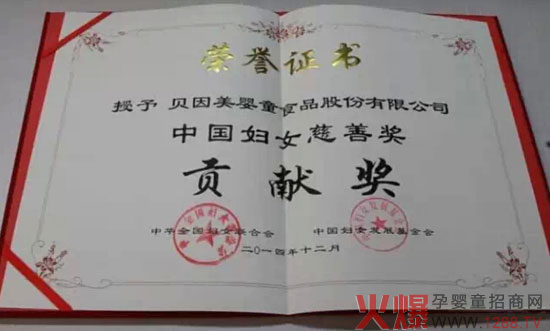 荣誉证书
授予 贝因美婴童食品股份有限公司
中国妇女慈善奖
贡献奖
中华全国妇女联合会 中国妇女发展基金会
二〇一四年十二月
火爆孕婴童招商网
www.1288.TV